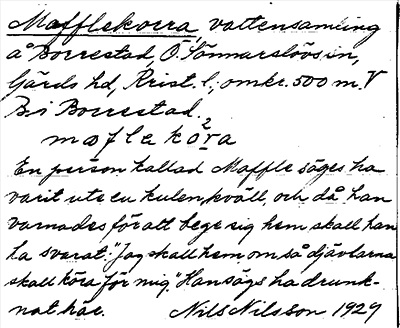 Mafflekorra, vattensamling
å Borrestad, Ö. Sönnarslövs sn,
Gärds hd, Krist. l., omkr. 500 m. V
B. i Borrestad.
maflekö̱ra 2
En person kallad Maffle säges ha
varit ute en kulen kväll, och då han
varnades för att bege sig hem skall han
ha svarat: "Jag skall hem, om så djävlarna
skall köra för mig." Han sägs ha drunk-
nat här. Nils Nilsson 1929